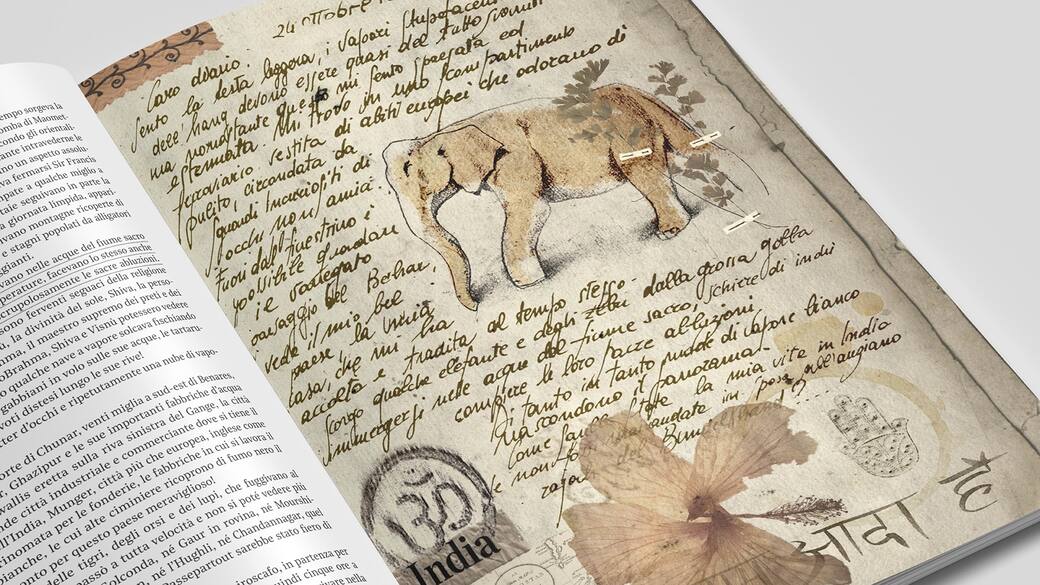 empo sorgeva la
omba di Maomet-
condo gli orientali.
ante intravederne le
no un aspetto assolu-
va fermarsi Sir Francis
pate a qualche miglio a
taie seguivano in parte la
a giornata limpida, appari-
vano montagne ricoperte di
e stagni popolati da alligatori
ggianti.
vano nelle acque del fiume sacro
perature, facevano lo stesso anche
crupolosamente le sacre abluzioni.
sono ferventi seguaci della religione
, la divinità del sole, Shiva, la perso-
ama, il maestro supremo dei preti e dei
Brahma, Shiva e Visnù potessero vedere
qualche nave a vapore solcava fischiando
gabbiani in volo sulle sue acque, le tartaru-
voti distesi lungo le sue rive!
ter d'occhi e ripetutamente una nube di vapo-
orte di Chunar, venti miglia a sud-est di Benares,
Ghazipur e le sue importanti fabbriche d'acqua
wallis eretta sulla riva sinistra del Gange, la città
nde città industriale e commerciante dove si tiene il
ll'India. Munger, città più che europea, inglese come
inomata per le fonderie, le fabbriche in cui si lavora il
bianche, le cui alte ciminiere ricoprono di fumo nero il
onto per questo paese meraviglioso.
delle tigri, degli orsi e dei lupi, che fuggivano al
assò a tutta velocità e non si poté vedere più
Golconda, né Gaur in rovina, né Mourshi-
né l'Hugli, né Chandannagar, quel
Passepartout sarebbe stato fiero di
iroscafo, in partenza per
quindi cinque ore a
ivare nella
24 ottobre
Caro diario,
sento la testa leggera, i vapori stupefacenti
dell'hang devono essere quasi del tutto svaniti
ma nonostante questo mi sento spaesata ed
esterrefatta. Mi trovo in uno scompartimento
ferroviario vestita di abiti europei che odorano di
pulito, circondata da
sguardi incuriositi di
occhi non amici.
Fuori dal finestrino è
possibile guardare
il variegato
paesaggio del Behar,
vedo il mio bel
paese, la mia
casa, che mi ha
accolta e tradita al tempo stesso.
Scorgo qualche elefante e degli zebù dalla grossa gobba
immergersi nelle acque del fiume sacro, schiere di indù
compiere le loro pure abluzioni.
Di tanto in tanto nubi di vapore bianco
nascondono il panorama.
Come sarebbe stata la mia vita in India
non fossi
India
आदा